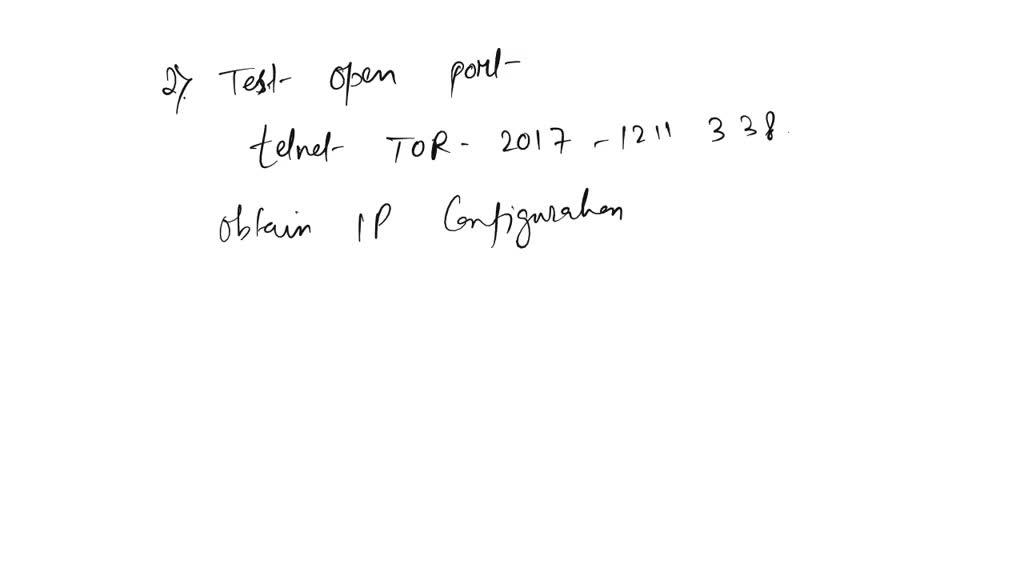 2). Test- open port-
telnet- TOR - 2017 - 1211 3 38.
obtain IP Configuration